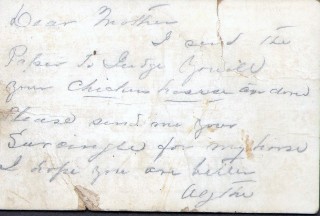 Dear Mother
I send the
Paper to Judge
your chicken house and
Please send me your
Surcingle for my horse
I hope you are better